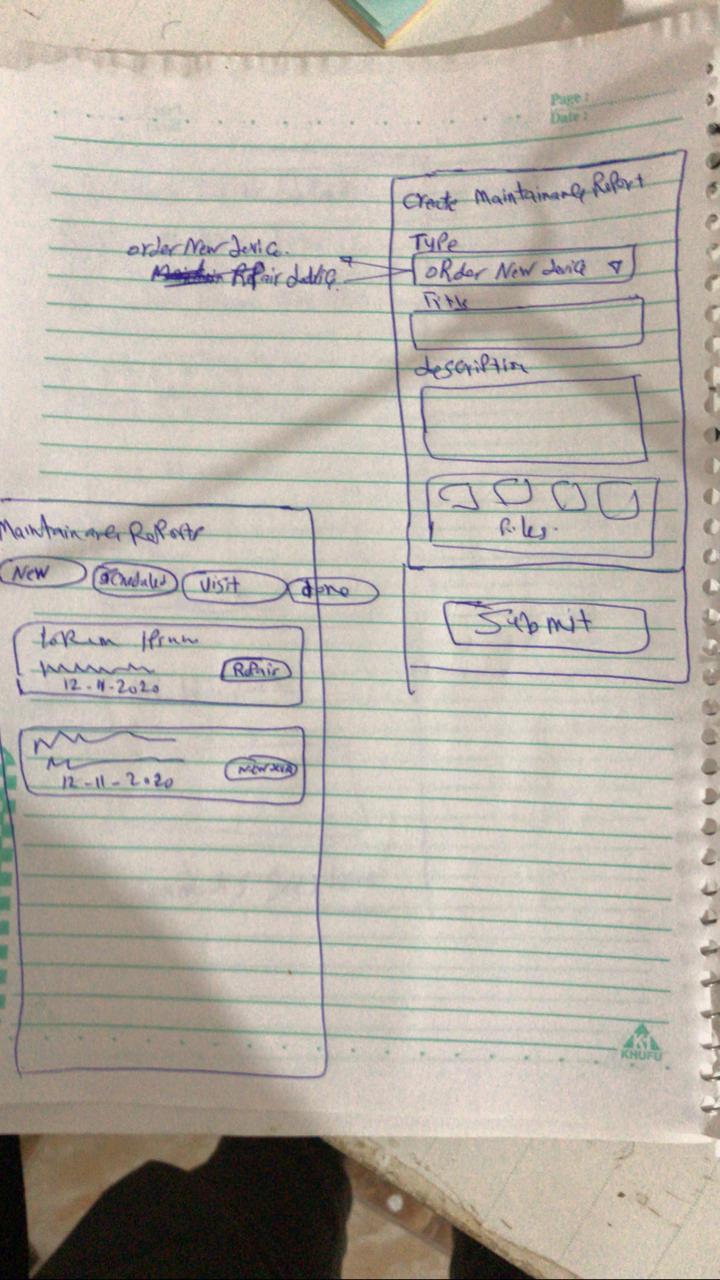 Page :
Date :
Create Maintainance Report
Type
order New device
order New device.
Repair device
Title
description
files.
Submit
Maintainance Reports
New
scheduled
Visit
done
lorem Ipsum
Repair
12-11-2020
12-11-2020
KHUFU